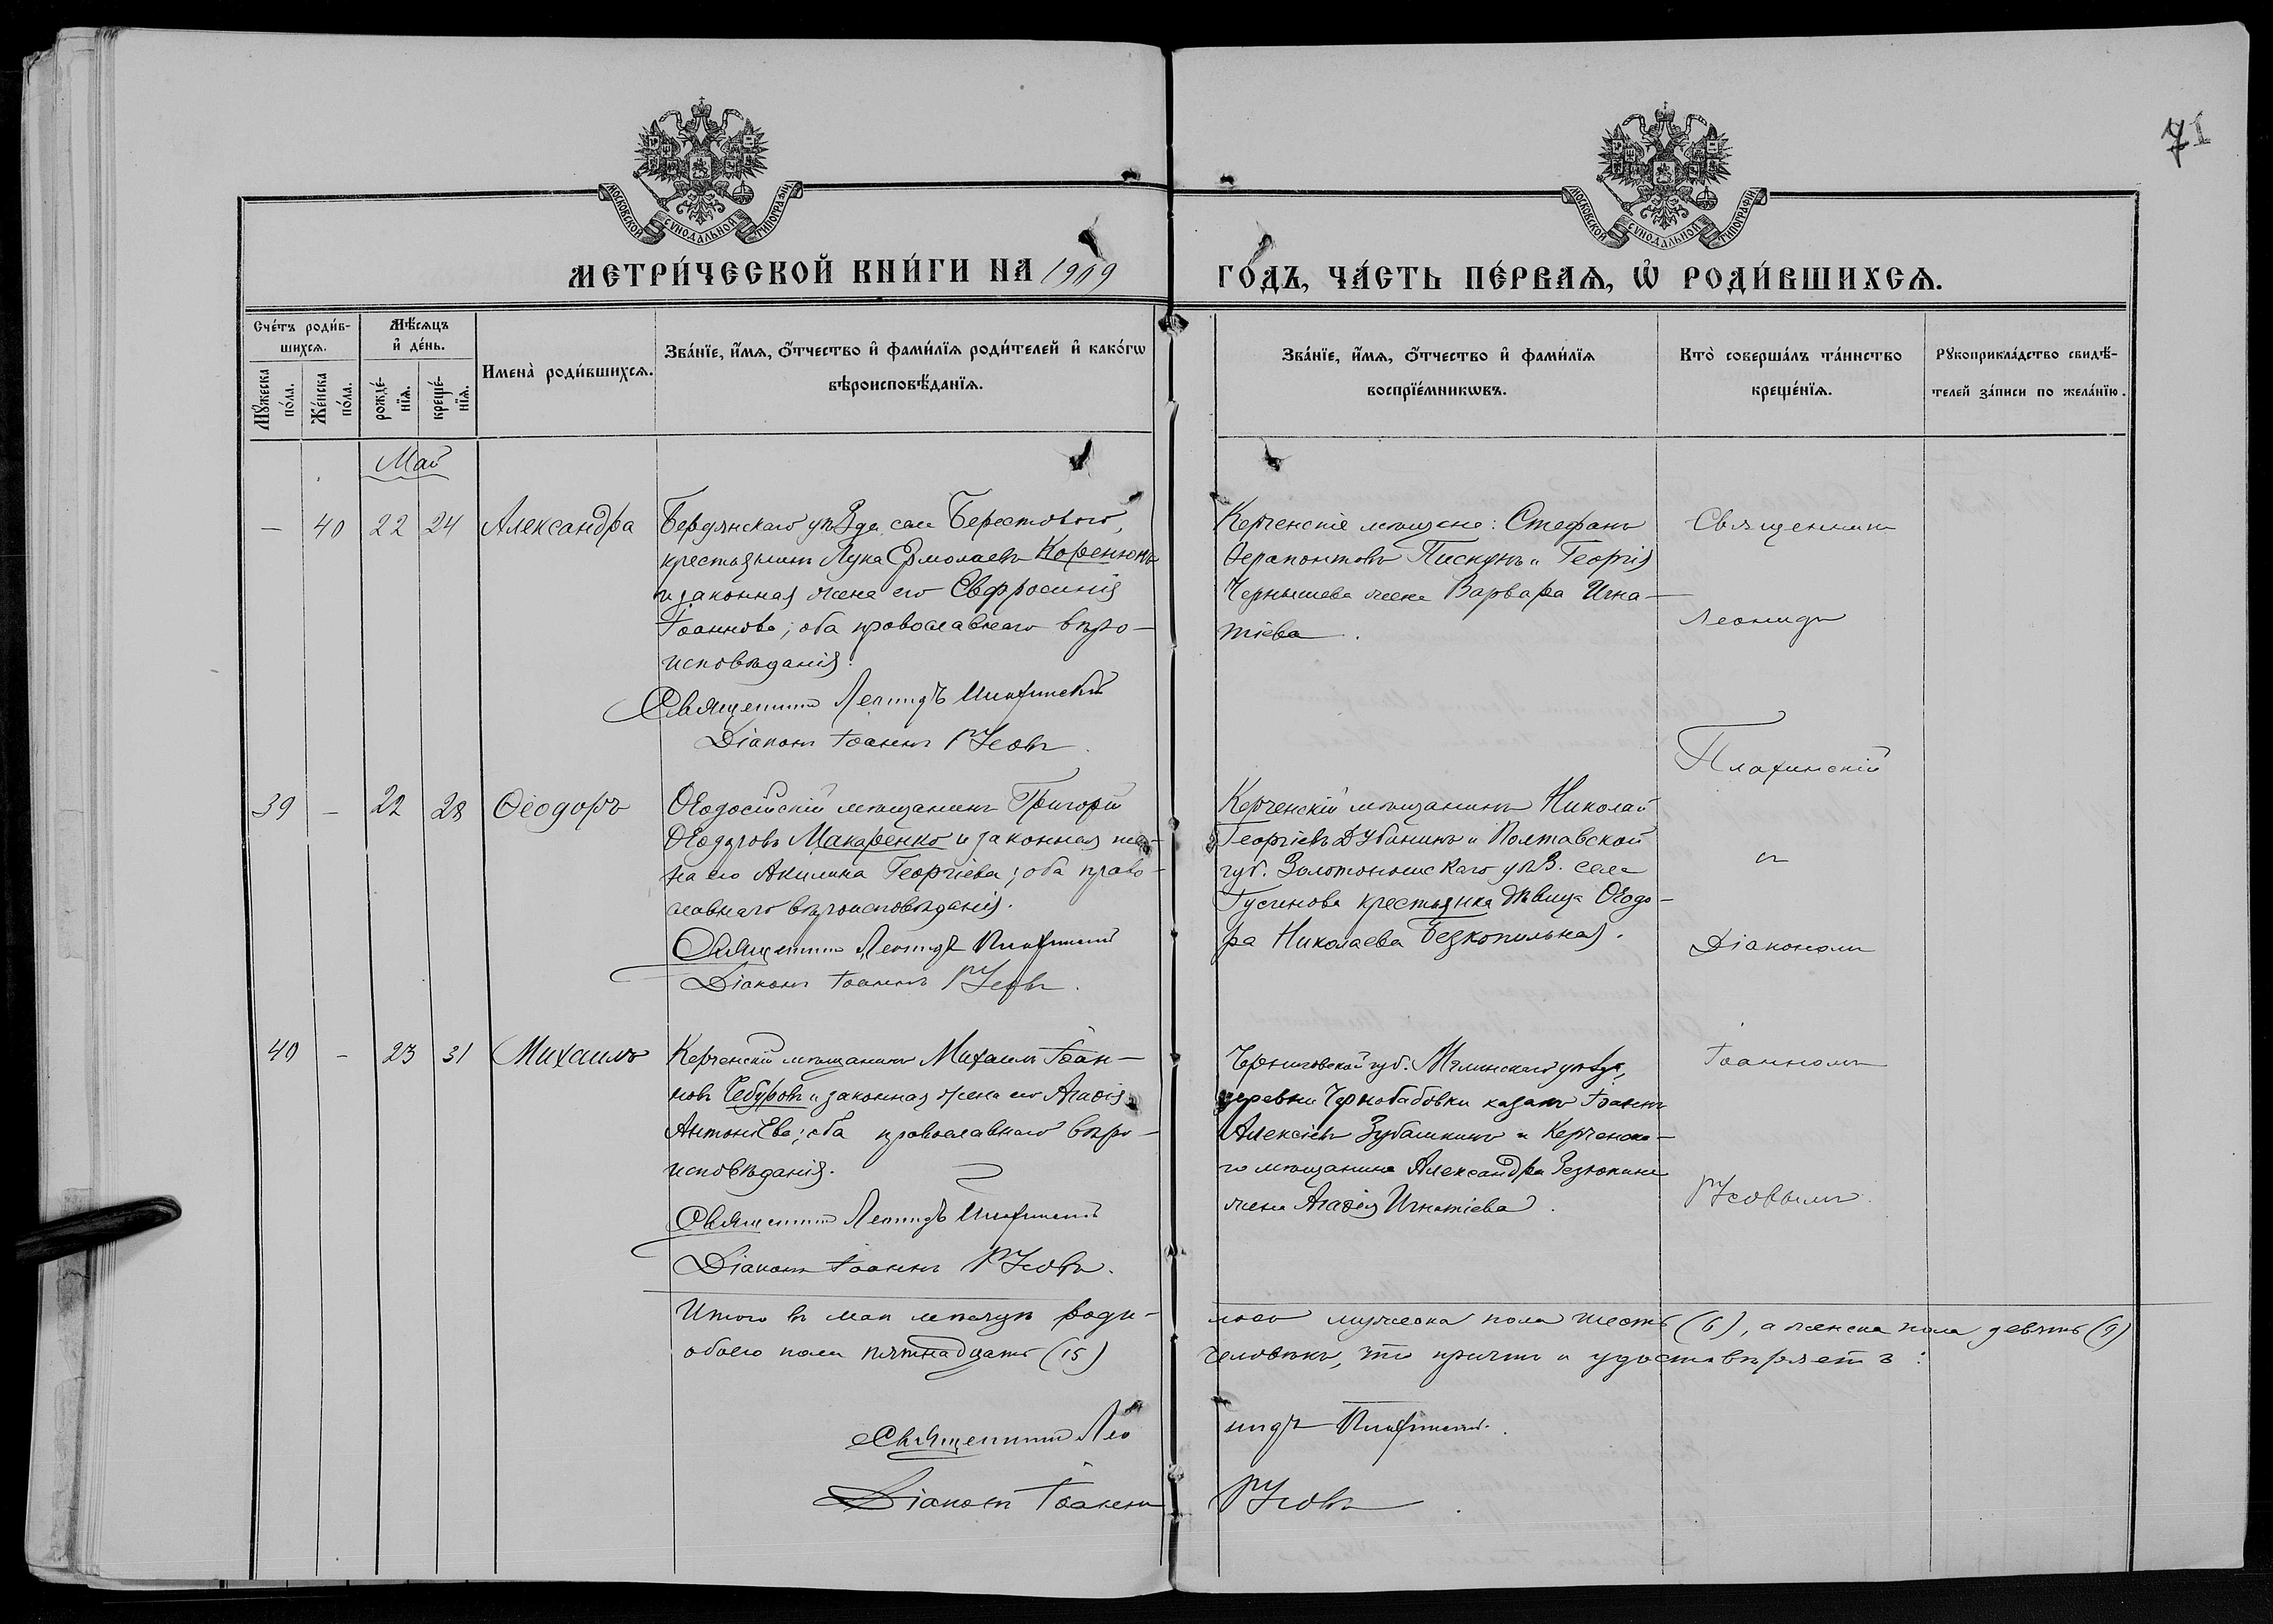 71
МОСКОВСКОЙ СУНОДАЛЬНОЙ ТИПОГРАФІИ
МОСКОВСКОЙ СУНОДАЛЬНОЙ ТИПОГРАФІИ
МЕТРИ́ЧЕСКОЙ КНИ́ГИ НА 1909
ГО́ДЪ, ЧА́СТЬ ПЕ́РВАѦ, Ѡ҆ РОДИ́ВШИХСѦ.
Сче́тъ роди́в-
шихсѧ.
Мꙋ́жеска
по́ла.
Же́нска
по́ла.
Мѣ́сѧцъ
и҆ де́нь.
рожде́-
нїѧ.
креще́-
нїѧ.
Имена̀ роди́вшихсѧ.
Зва́нїе, и҆́мѧ, ѻ҆́тчество и҆ фами́лїѧ роди́телей и҆ како́гѡ
вѣроисповѣ́данїѧ.
Зва́нїе, и҆́мѧ, ѻ҆́тчество и҆ фами́лїѧ
воспрїе́мникѡвъ.
Кто̀ соверша́лъ та́инство
креще́нїѧ.
Рꙋкоприкла́дство свидѣ́-
телей за́писи по жела́нїю.
Май
— 40 22 24 Александра
Бердянскаго уѣзда села Берестового,
крестьянинъ Лука Ермолаевъ Коренюкъ
и законная жена его Евфросинія
Іоаннова; оба православнаго вѣро-
исповѣданія.
Священникъ Леонидъ
Діаконъ Іоаннъ Русовъ.
Керченскіе мѣщане: Стефанъ
Ѳерапонтовъ Пискунъ и Георгія
Чернышева жена Варвара Игна-
тіева.
39 — 22 28 Ѳеодоръ
Ѳеодосійскій мѣщанинъ Григорій
Ѳеодоровъ Макаренко и законная же-
на его Акилина Георгіева; оба право-
славнаго вѣроисповѣданія.
Священникъ Леонидъ
Діаконъ Іоаннъ Русовъ.
Керченскій мѣщанинъ Николай
Георгіевъ Дубининъ и Полтавской
губ. Золотоношскаго уѣз. села
Гусинова крестьянка дѣвица Ѳеодо-
ра Николаева Безкопыльная.
40 — 23 31 Михаилъ
Керченскій мѣщанинъ Михаилъ Іоан-
новъ Чебуровъ и законная жена его Агаѳія
Антоніева; оба православнаго вѣро-
исповѣданія.
Священникъ Леонидъ
Діаконъ Іоаннъ Русовъ.
Черниговской губ. Мглинскаго уѣзда,
деревни Чернобабовки казакъ Іоаннъ
Алексіевъ Зубашкинъ и Керченска-
го мѣщанина Александра Резюкина
жена Агаѳія Игнатіева.
Священникъ
Леонидъ
съ
Діакономъ
Іоанномъ
Русовымъ.
Итого въ маѣ мѣсяцѣ роди-
лось мужеска пола шесть (6), а женска пола девять (9)
обоего пола пятнадцать (15)
человѣкъ, что причтъ и удостовѣряетъ:
Священникъ Лео
нидъ
Діаконъ Іоаннъ
Русовъ